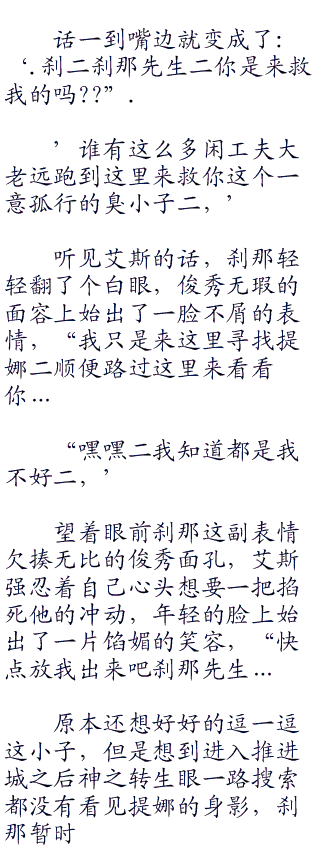 话一到嘴边就变成了：
‘.刹二刹那先生二你是来救
我的吗??”.
’谁有这么多闲工夫大
老远跑到这里来救你这个一
意孤行的臭小子二，’
听见艾斯的话，刹那轻
轻翻了个白眼，俊秀无瑕的
面容上始出了一脸不屑的表
情，“我只是来这里寻找提
娜二顺便路过这里来看看
你...
“嘿嘿二我知道都是我
不好二，’
望着眼前刹那这副表情
欠揍无比的俊秀面孔，艾斯
强忍着自己心头想要一把掐
死他的冲动，年轻的脸上始
出了一片馅媚的笑容，“快
点放我出来吧刹那先生...
原本还想好好的逗一逗
这小子，但是想到进入推进
城之后神之转生眼一路搜索
都没有看见提娜的身影，刹
那暂时